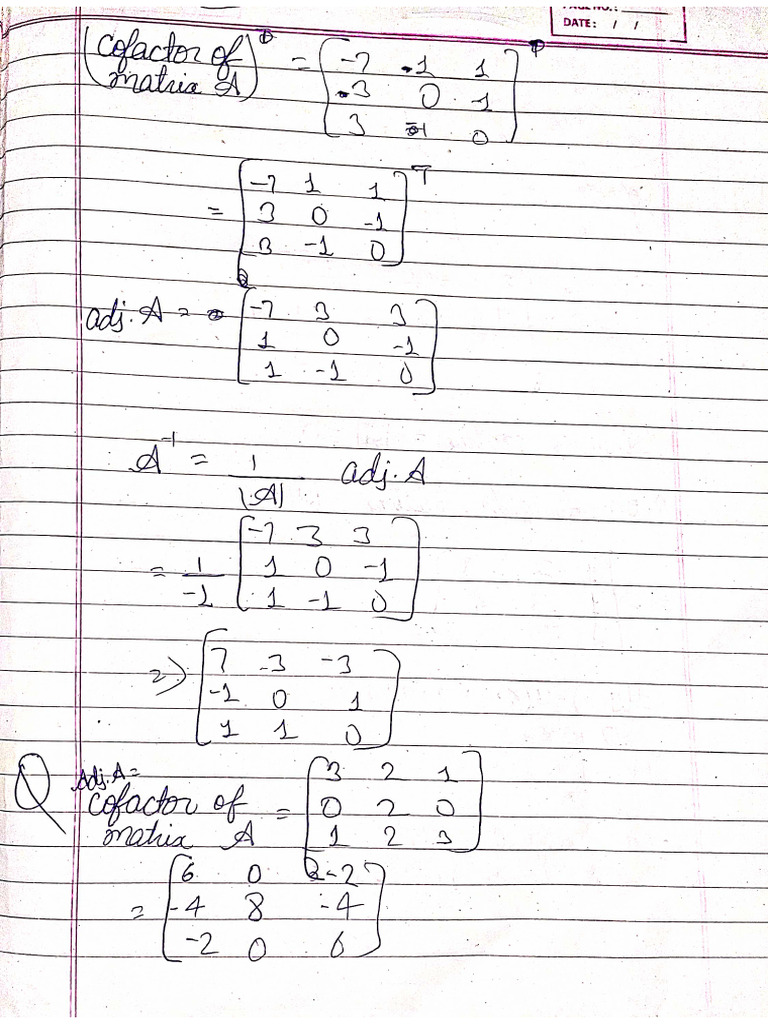 PAGE NO.:
DATE: / /
(cofactor of matrix A)ᵀ = [-7 -1 1
-3 0 -1
3 -1 0]ᵀ
= [-7 1 1
3 0 -1
3 -1 0]ᵀ
adj. A = [-7 3 3
1 0 -1
1 -1 0]
A⁻¹ = 1/|A| adj. A
= 1/-1 [-7 3 3
1 0 -1
1 -1 0]
=> [7 -3 -3
-1 0 1
1 1 0]
Q Adj. A =
cofactor of matrix A = [3 2 1
0 2 0
1 2 3]
= [6 0 -2
-4 8 -4
-2 0 6]